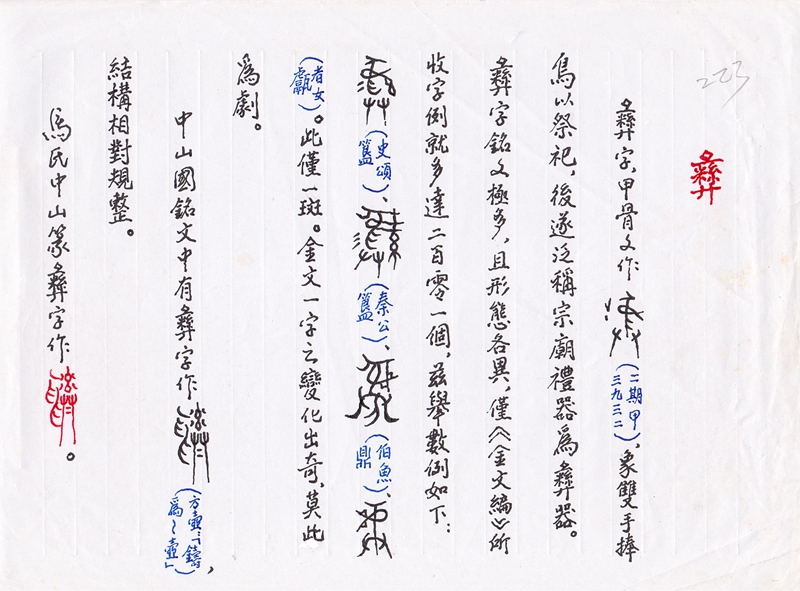 223
彝
彝字，甲骨文作（二期甲三九三二），象雙手捧
鳥以祭祀，後遂泛稱宗廟禮器爲彝器。
彝字銘文極多，且形態各異，僅《金文編》所
收字例就多達二百零一個，兹舉數例如下：
（史頌簋）、（秦公簋）、（伯魚鼎）、
（者女甗）。此僅一斑。金文一字之變化出奇，莫此
爲劇。
中山國銘文中有彝字作（方壺「鑄爲彝壺」），
結構相對規整。
馬氏中山篆彝字作。